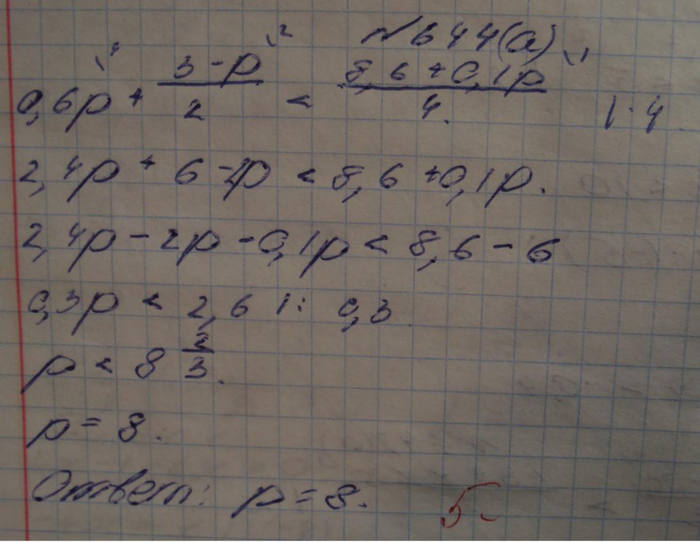 №644(а)
0,6p \4 + (3-p)/2 \2 < (8,6+0,1p)/4 \1 |·4
2,4p + 6 - 2p < 8,6 + 0,1p.
2,4p - 2p - 0,1p < 8,6 - 6
0,3p < 2,6 |: 0,3
p < 8 2/3.
p = 8.
Ответ: p = 8.
5-